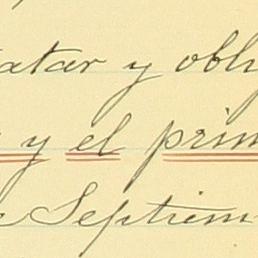 atar y obli
y el prim
e Septiem